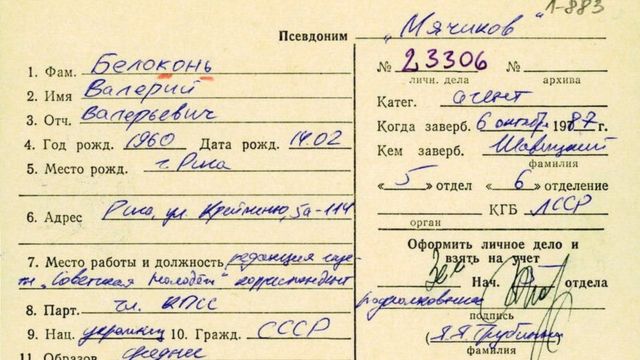 1-883
Псевдоним „Мячиков"
1. Фам. Белоконь
№ 23306 №
личн. дела архива
2. Имя Валерий
Катег. агент
3. Отч. Валерьевич
Когда заверб. 6 октября 1987г.
4. Год рожд. 1960 Дата рожд. 14.02
Кем заверб. Шавицкий
фамилия
5. Место рожд. г. Рига
«5» отдел «6» отделение
6. Адрес Рига, ул. 5а-114
КГБ ЛССР
орган
Оформить личное дело и
взять на учет
7. Место работы и должность редакция
„Советская Молодёжь" корреспондент
Нач. отдела
8. Парт. чл. КПСС
подполковник
подпись
9. Нац. украинец 10. Гражд. СССР
фамилия
11. Образов. среднее